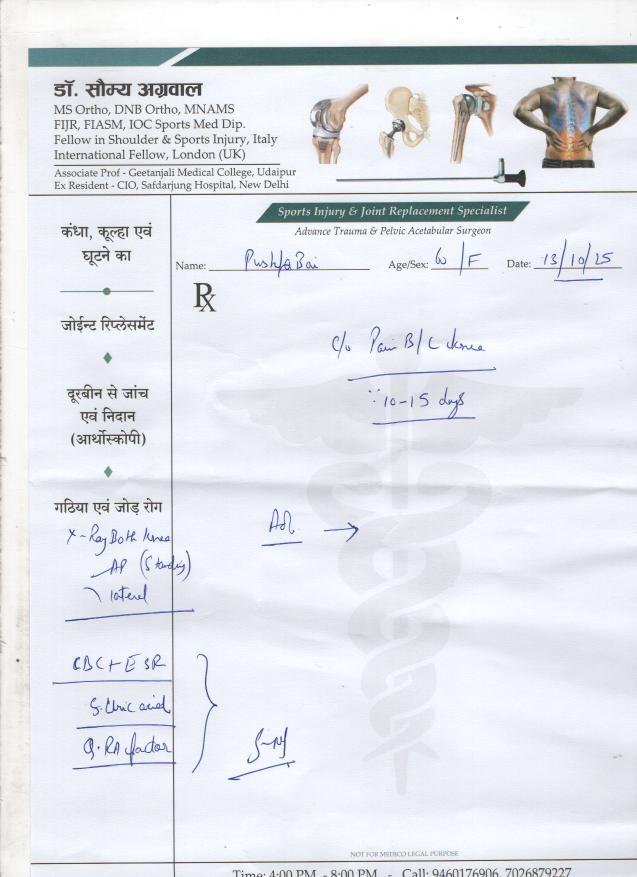 डॉ. सौम्य अग्रवाल
MS Ortho, DNB Ortho, MNAMS
FIJR, FIASM, IOC Sports Med Dip.
Fellow in Shoulder & Sports Injury, Italy
International Fellow, London (UK)
Associate Prof - Geetanjali Medical College, Udaipur
Ex Resident - CIO, Safdarjung Hospital, New Delhi
Sports Injury & Joint Replacement Specialist
Advance Trauma & Pelvic Acetabular Surgeon
Name: Pushpa Bai Age/Sex: 60/F Date: 13/10/25
Rx
कंधा, कूल्हा एवं
घूटने का
जोईन्ट रिप्लेसमेंट
दूरबीन से जांच
एवं निदान
(आर्थोस्कोपी)
गठिया एवं जोड़ रोग
c/o Pain B/L Knee
10-15 days
Adv →
X-Ray Both Knee
AP (Standing)
lateral
CBC + ESR
S. Uric acid
Q. RA factor
NOT FOR MEDICO LEGAL PURPOSE
Time: 4:00 PM - 8:00 PM - Call: 9460176906, 7026879227